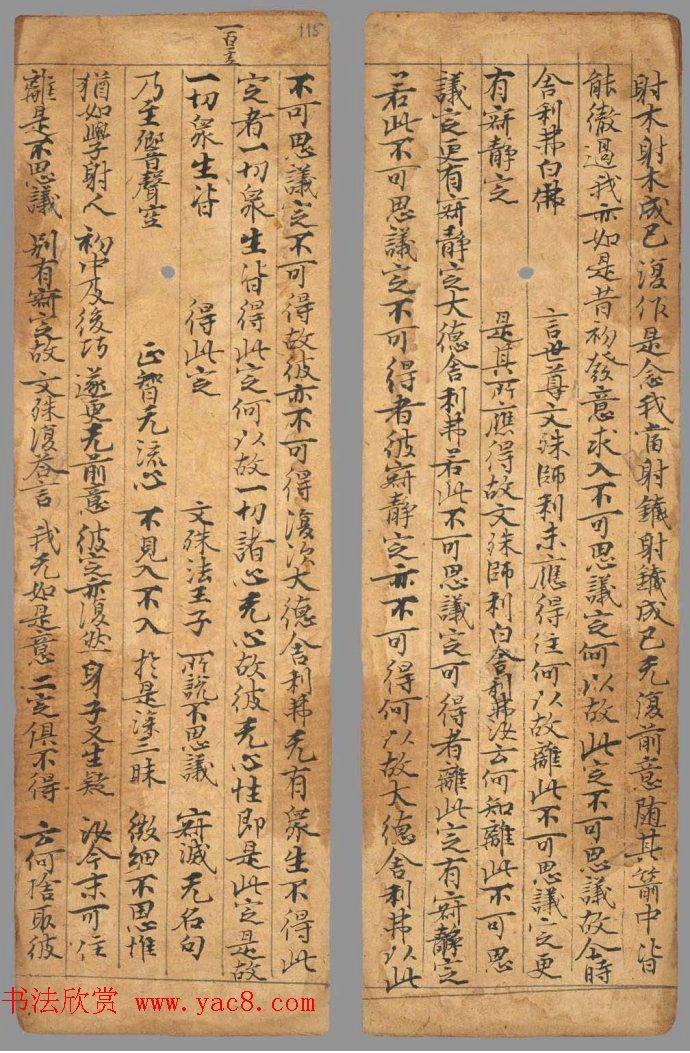 射木射木成已復作是念我當射鐵射鐵成已无復前意随其箭中皆
能徹過我亦如是昔初發意求入不可思議定何以故此定不可思議故尒時
舍利弗白佛 言世尊文殊師利未應得住何以故離此不可思議定更
有寂靜定 是其所應得故文殊師利白舍利弗汝云何知離此不可思
議定更有寂靜定大德舍利弗若此不可思議定可得者離此定有寂靜定
若此不可思議定不可得者彼寂靜定亦不可得何以故大德舍利弗以此
115
一百十五
不可思議定不可得故彼亦不可得復次大德舍利弗无有衆生不得此
定者一切衆生皆得此定何以故一切諸心无心故彼无心性即是此定是故
一切衆生皆 得此定 文殊法王子 所說不思議 寂滅无名句
乃至響聲空 正智无流心 不見入不入 於是深三昧 微細不思惟
猶如學射人 初中及後巧 遂更无前意 彼定亦復然 身子又生疑 汝今未可住
離是不思議 別有寂定故 文殊復答言 我无如是意 二定俱不得 云何捨取彼
书法欣赏 www.yac8.com